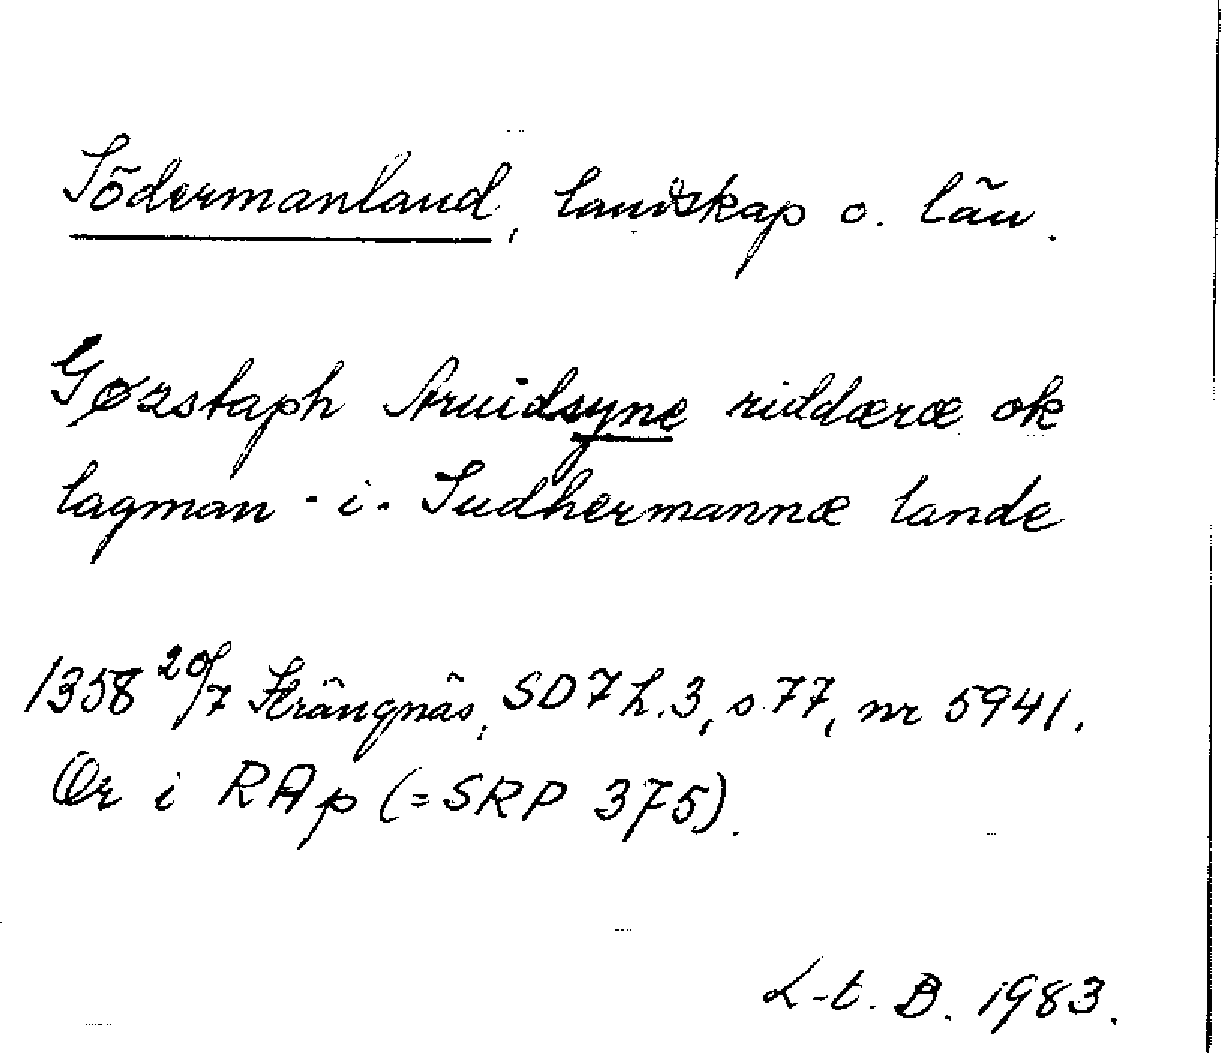 Södermanland, landskap o. län.
Gøzstaph Aruidsyne riddæræ ok
lagman · i · Sudhermannæ lande
1358 20/7 Strängnäs, SD 7 h. 3, s. 77, nr 5941.
Or i RAp (= SRP 375).
L-t. B. 1983.